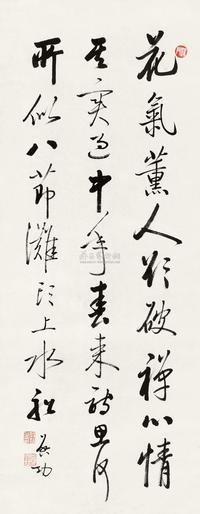 花氣薰人欲破禪心情
其實過中年春來詩思何
所似八節灘頭上水船 啟功